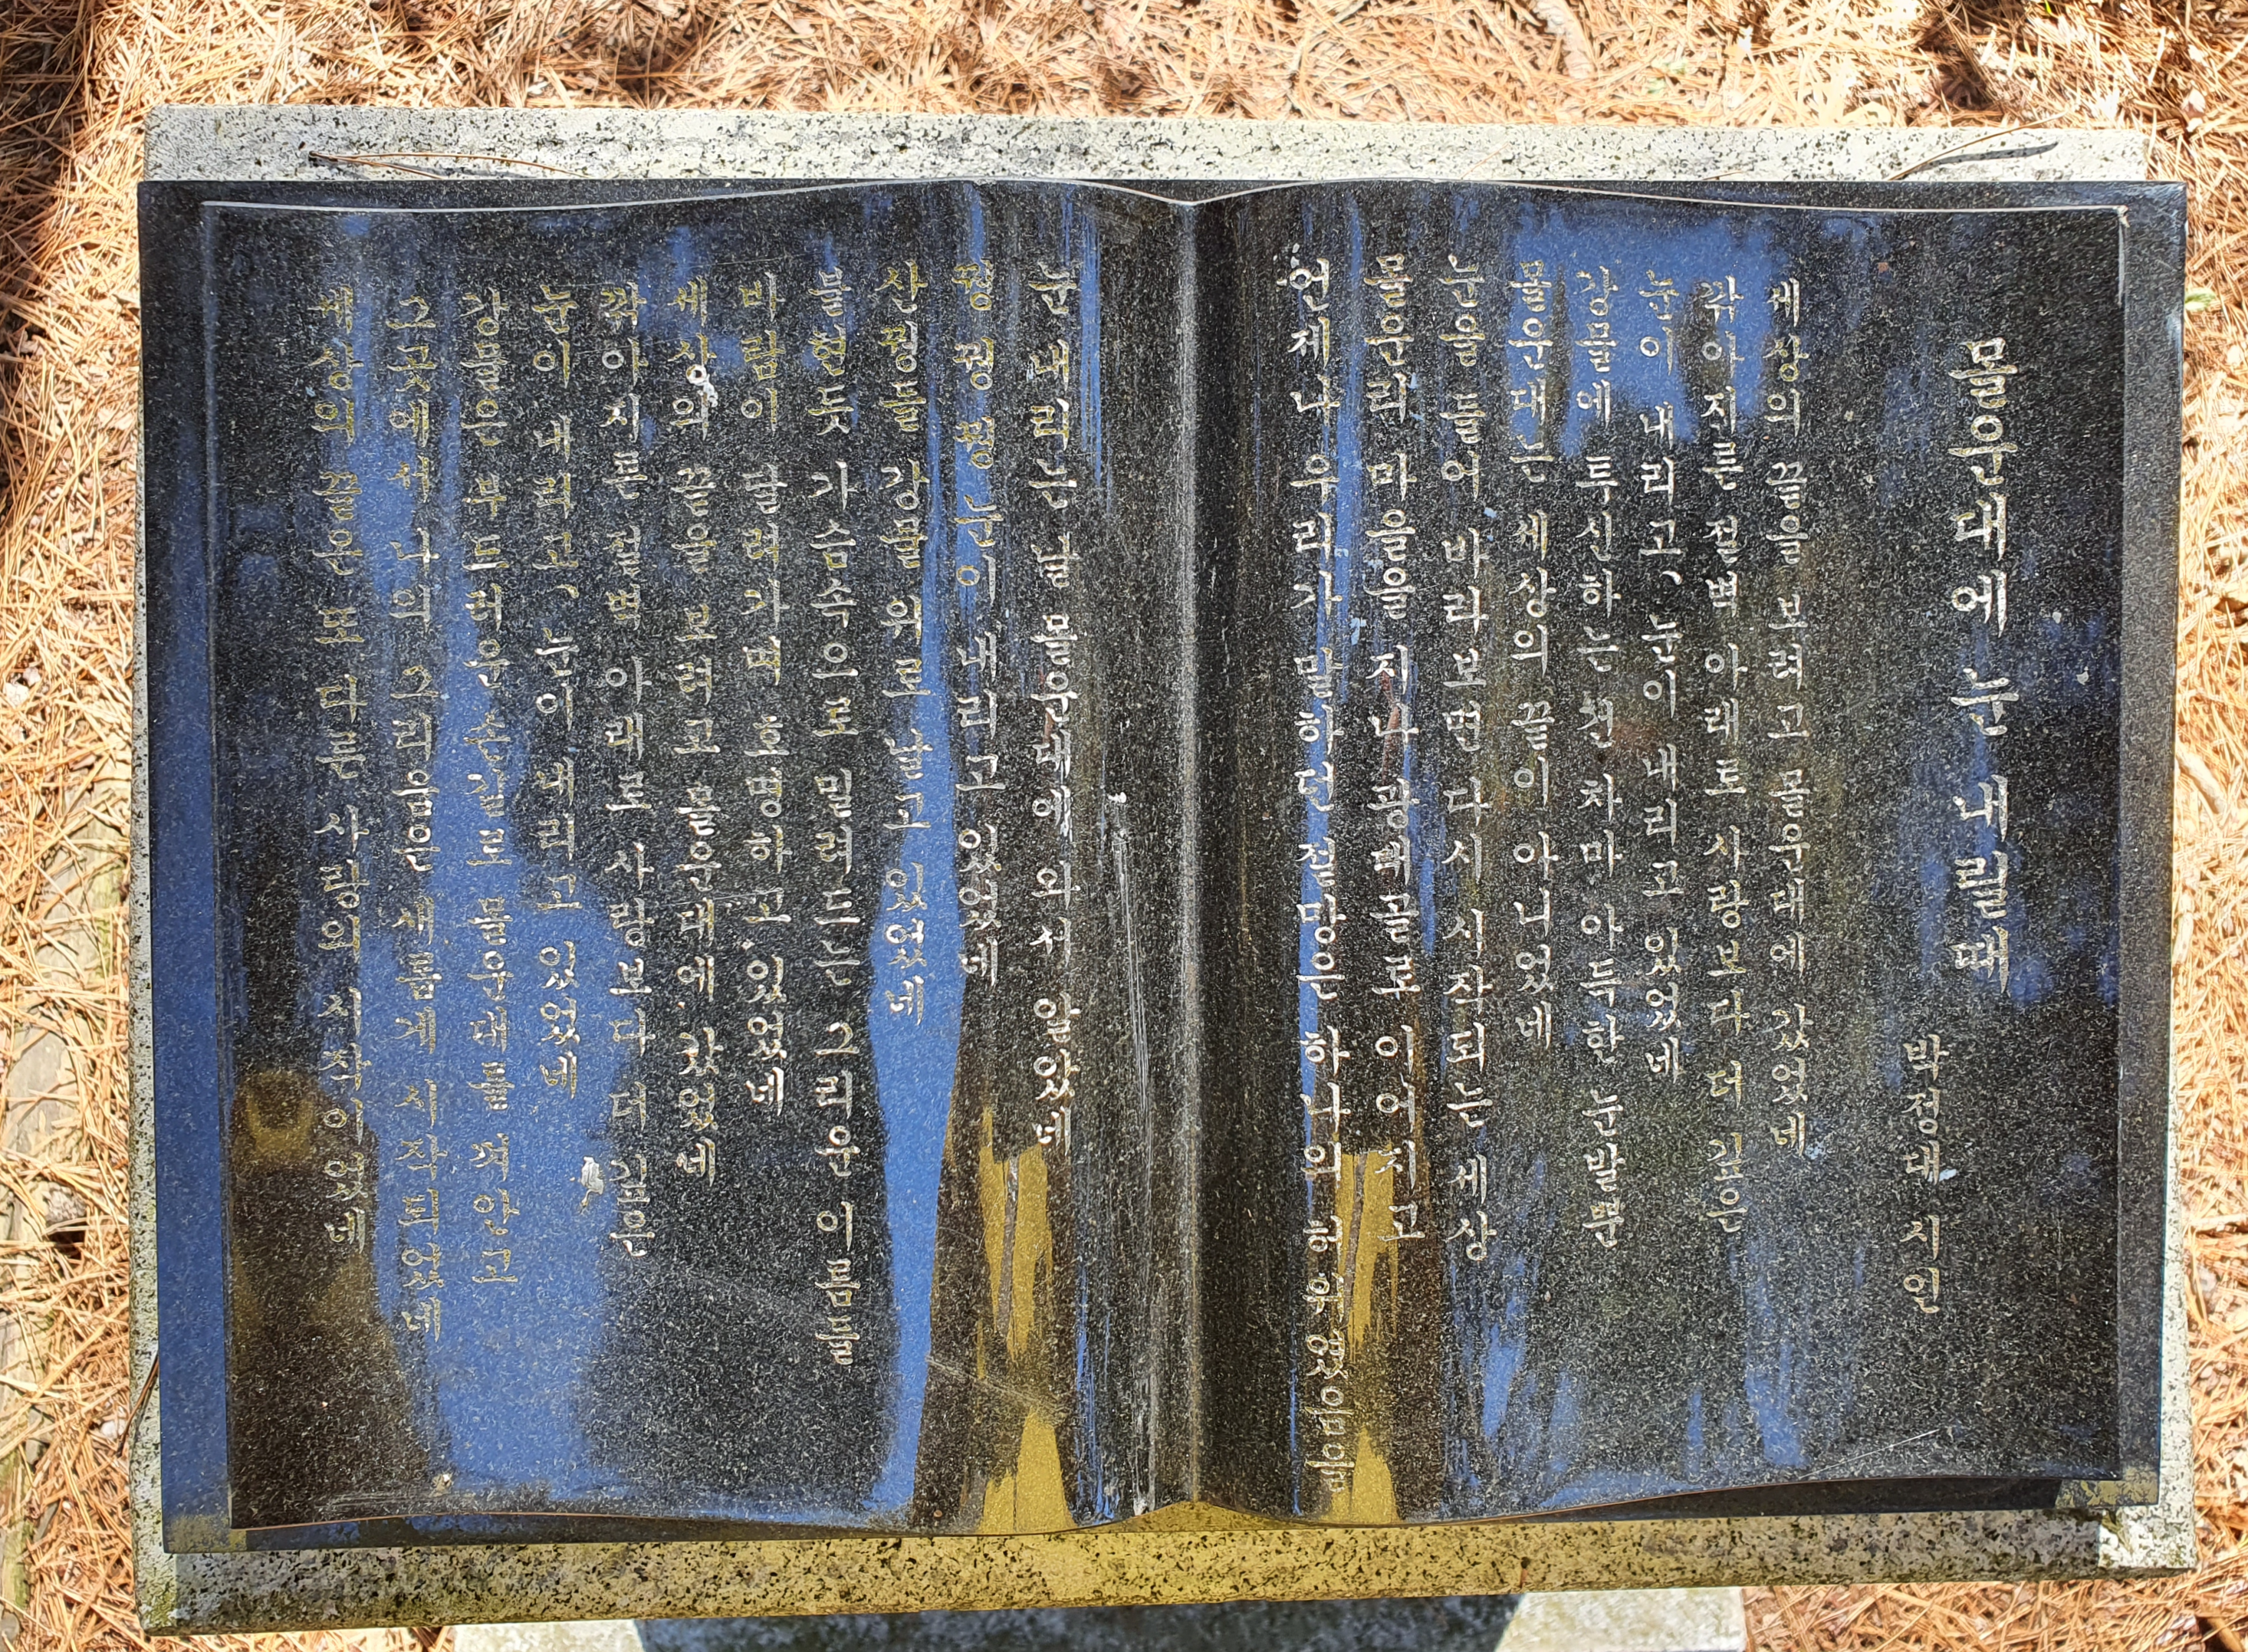 몰운대에 눈 내릴 때
박정대 시인
세상의 끝을 보려고 몰운대에 갔었네
깎아지른 절벽 아래로 사랑보다 더 깊은
눈이 내리고, 눈이 내리고 있었네
강물에 투신하는 천 차마 아득한 눈발뿐
몰운대는 세상의 끝이 아니었네
눈을 들어 바라보면 다시 시작되는 세상
몰운리 마을을 지나 광대골로 이어지고
언제나 우리가 말하던 절망은 하나의 허위였음을
눈 내리는 날 몰운대에 와서 알았네
꿩 꿩 꿩 눈이 내리고 있었네
산꿩들 강물 위로 날고 있었네
불현듯 가슴속으로 밀려드는 그리운 이름들
바람이 달려가며 호명하고 있었네
세상의 끝을 보려고 몰운대에 갔었네
깎아지른 절벽 아래로 사랑보다 더 깊은
눈이 내리고, 눈이 내리고 있었네
강물은 부드러운 손길로 몰운대를 껴안고
그곳에서 나의 그리움은 새롭게 시작되었네
세상의 끝은 또 다른 사랑의 시작이었네